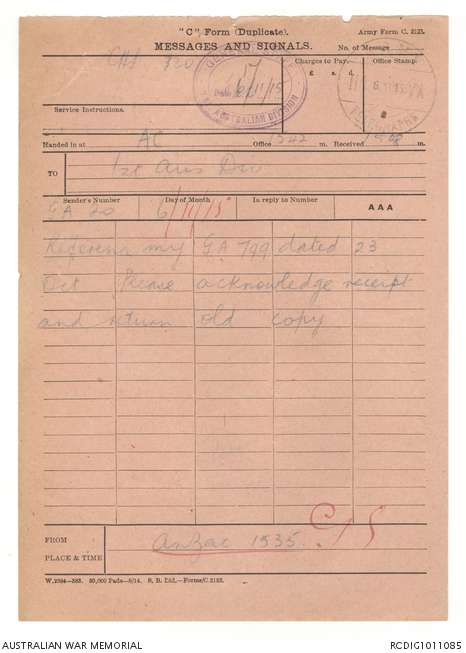 "C" Form (Duplicate). Army Form C. 2123.
MESSAGES AND SIGNALS. No. of Message
Charges to Pay. Office Stamp.
£ s. d.
Service Instructions.
6/11/15
AUSTRALIAN DIVISION
Handed in at AC Office 1542 m. Received m.
TO 1st Aus Div
Sender's Number Day of Month In reply to Number AAA
GA 20 6/11/15
Reference my GA 799 dated 23
Oct Please acknowledge receipt
and return old copy
FROM
PLACE & TIME
Anzac 1535
W.2394—583. 50,000 Pads—8/14. S. B. Ltd.—Forms/C.2123.
AUSTRALIAN WAR MEMORIAL RCDIG1011085